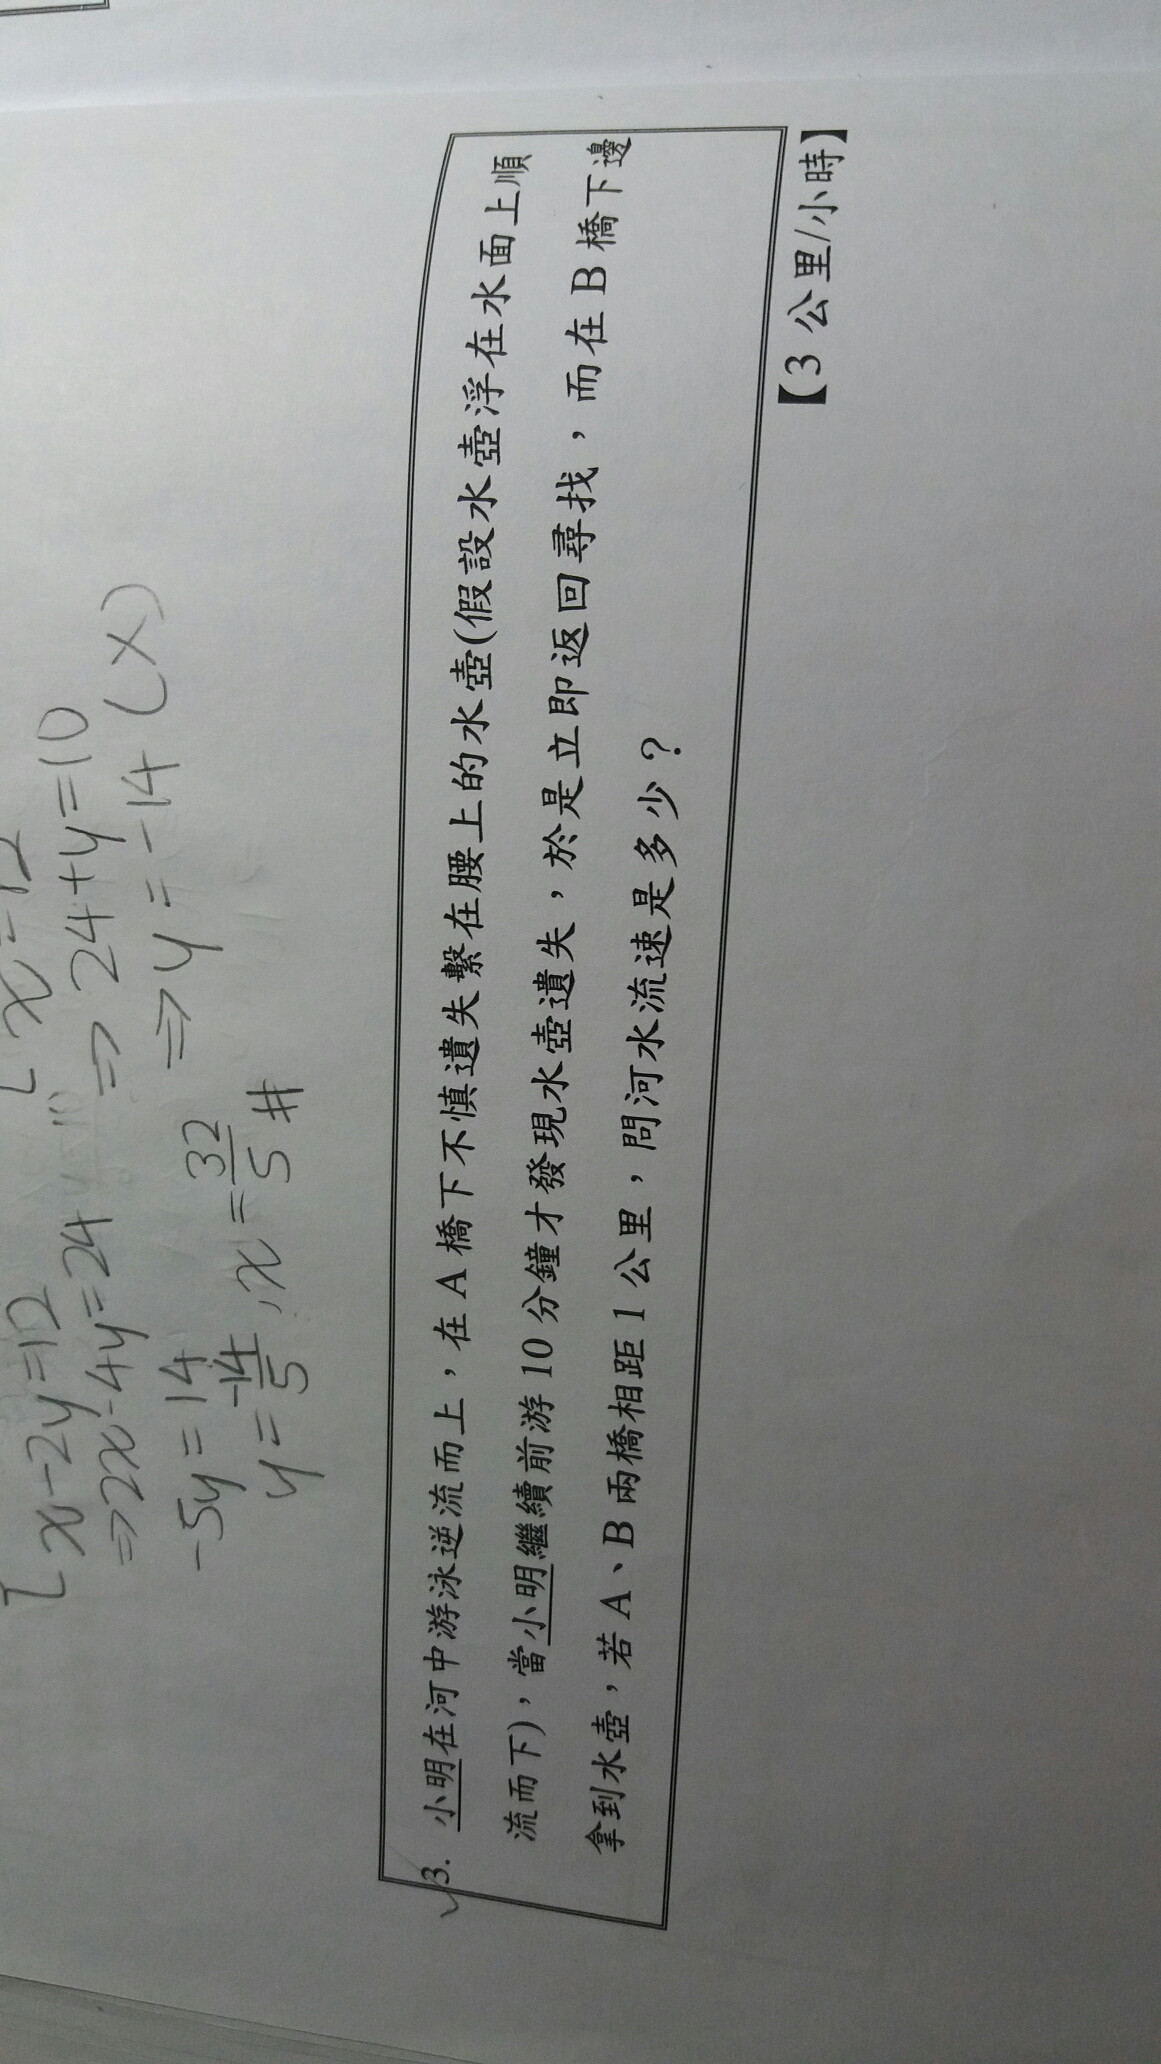 x-2y=12
⇒2x-4y=24
-5y=14
y=-14/5, x=32/5 #
⇒24+y=10
⇒y=-14 (×)
3. 小明在河中游泳逆流而上，在 A 橋下不慎遺失繫在腰上的水壺(假設水壺浮在水面上順
流而下)，當小明繼續前游 10 分鐘才發現水壺遺失，於是立即返回尋找，而在 B 橋下邊
拿到水壺，若 A、B 兩橋相距 1 公里，問河水流速是多少？
【3 公里/小時】